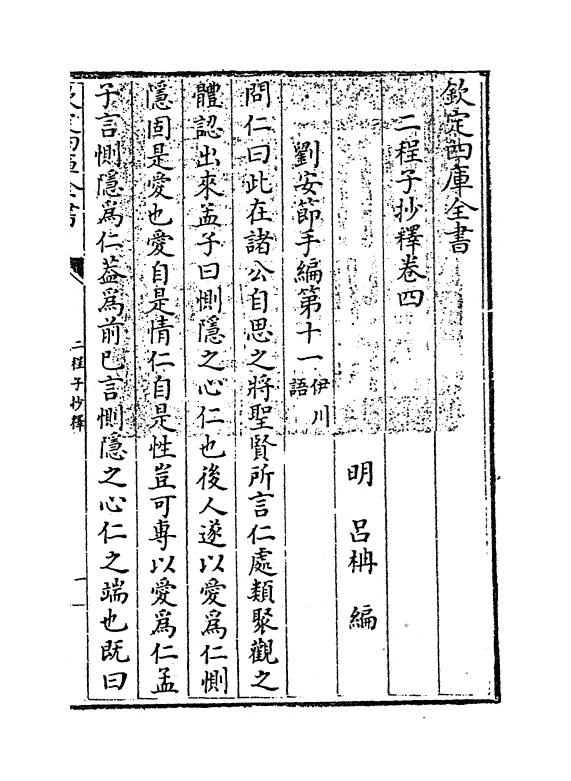 欽定四庫全書
二程子抄釋卷四
明 呂柟 編
劉安節手編第十一 伊川語
問仁曰此在諸公自思之將聖賢所言仁處類聚觀之
體認出來孟子曰惻隱之心仁也後人遂以愛為仁惻
隱固是愛也愛自是情仁自是性豈可專以愛為仁孟
子言惻隱為仁葢為前已言惻隱之心仁之端也既曰
二程子抄釋
一